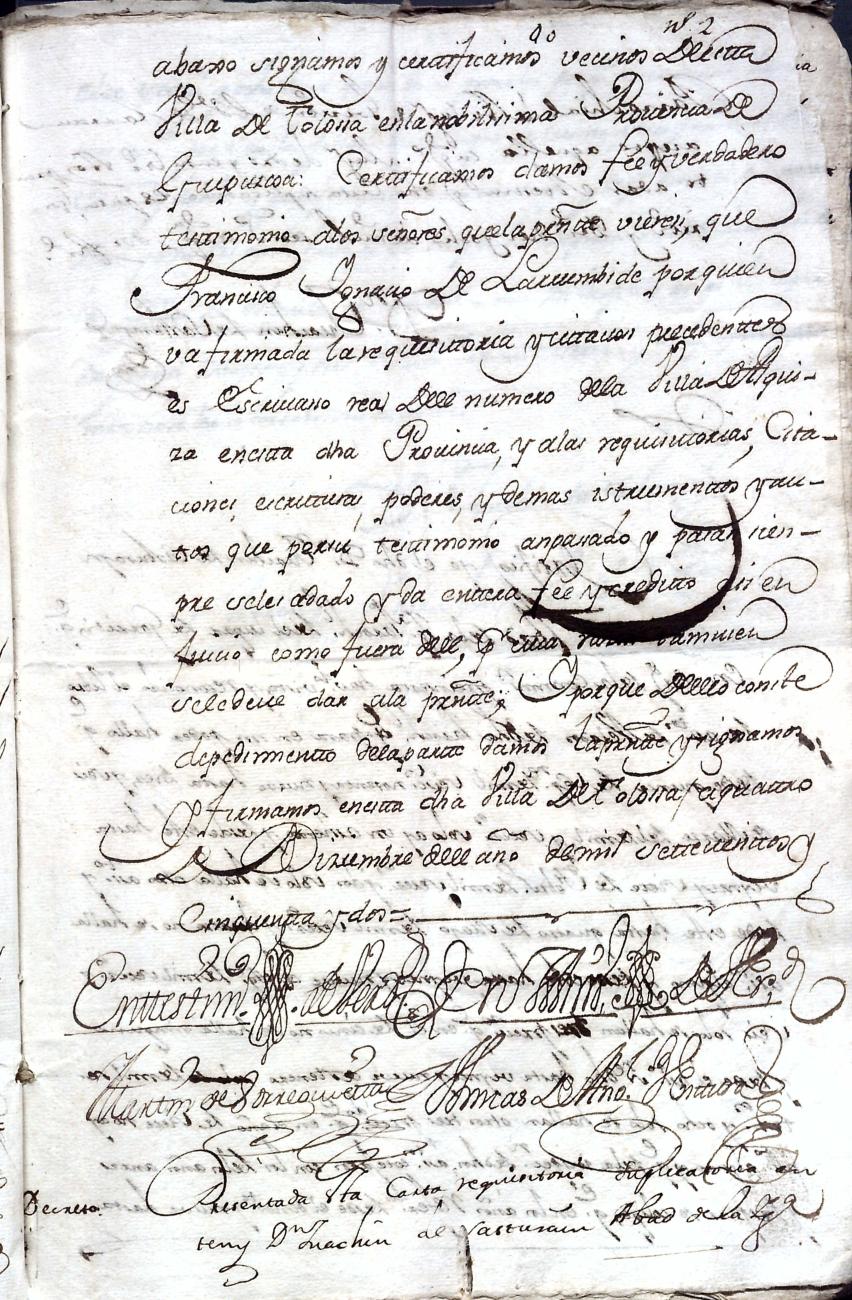 nº 2
abaxo signamos y certificamos vecinos De esta
Villa De Tolossa en la nobilissima Provincia De
Guipuzcoa: Certificamos damos fee y verdadero
testimonio a los señores que la presste vieren, que
Francisco Ignacio De Larrumbide por quien
va firmada la requisitoria y citacion precedentes
es Escrivano real Dell numero de la Villa De Azqui-
za en esta dha Provincia, y a las requisitorias, Cita-
ciones, escrituras, poderes, y demas istrumentos y au-
tos que por su testimonio an pasado y pasan sien-
pre se les a dado y da entera fee y credito asi en
juicio como fuera dell, y
se le deve dar a la pressnte, Y porque dello conste
de pedimento de la parte damos la pressnte y signamos
y firmamos en esta dha Villa De Tolossa a quattro
De Diziembre dell año de mil settecientos y
Cinquenta y dos=
En testim.º de verd En testim.º De Verd
Martin de Sorreguietta
Decreto. Presentada Carta requisitoria
Abad de la Ygª